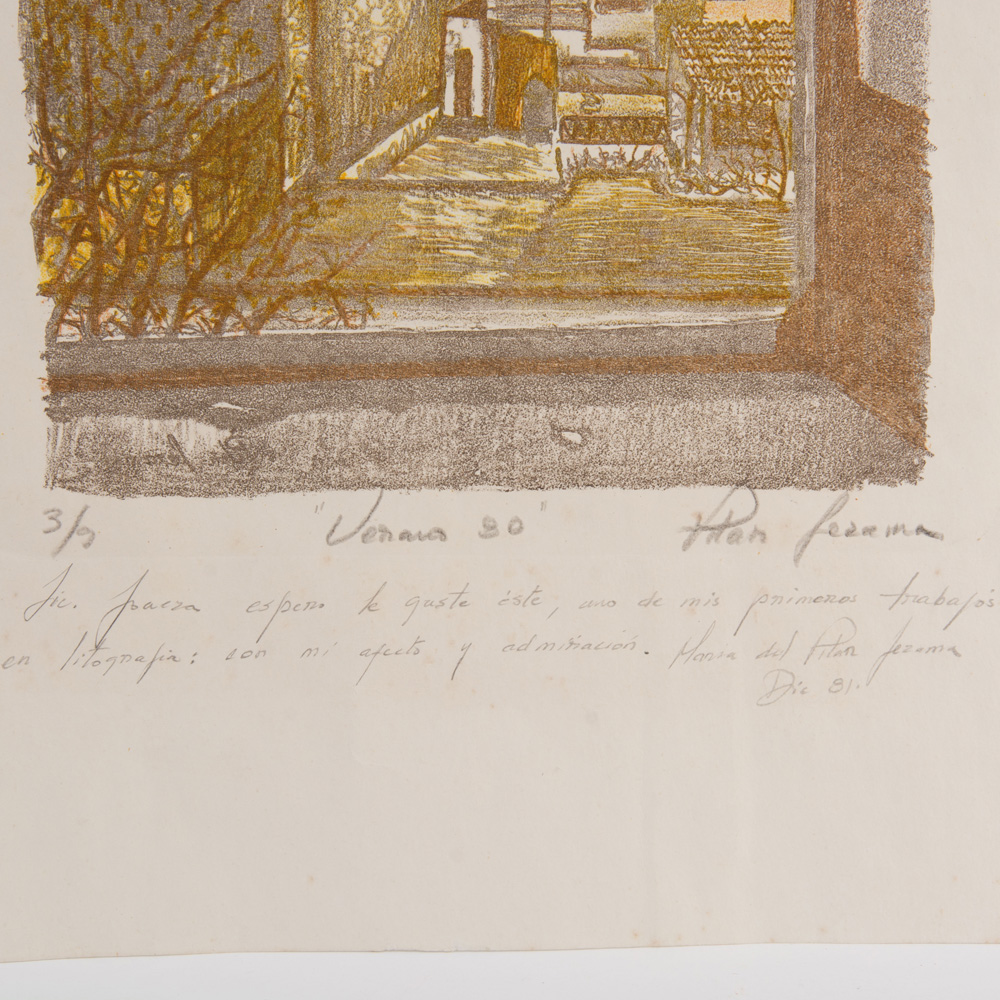 3/9 "Verano 80" Pilar Lezama
Lic. espero le guste éste, uno de mis primeros trabajos
en litografía: con mi afecto y admiración. María del Pilar Lezama
Dic 81.